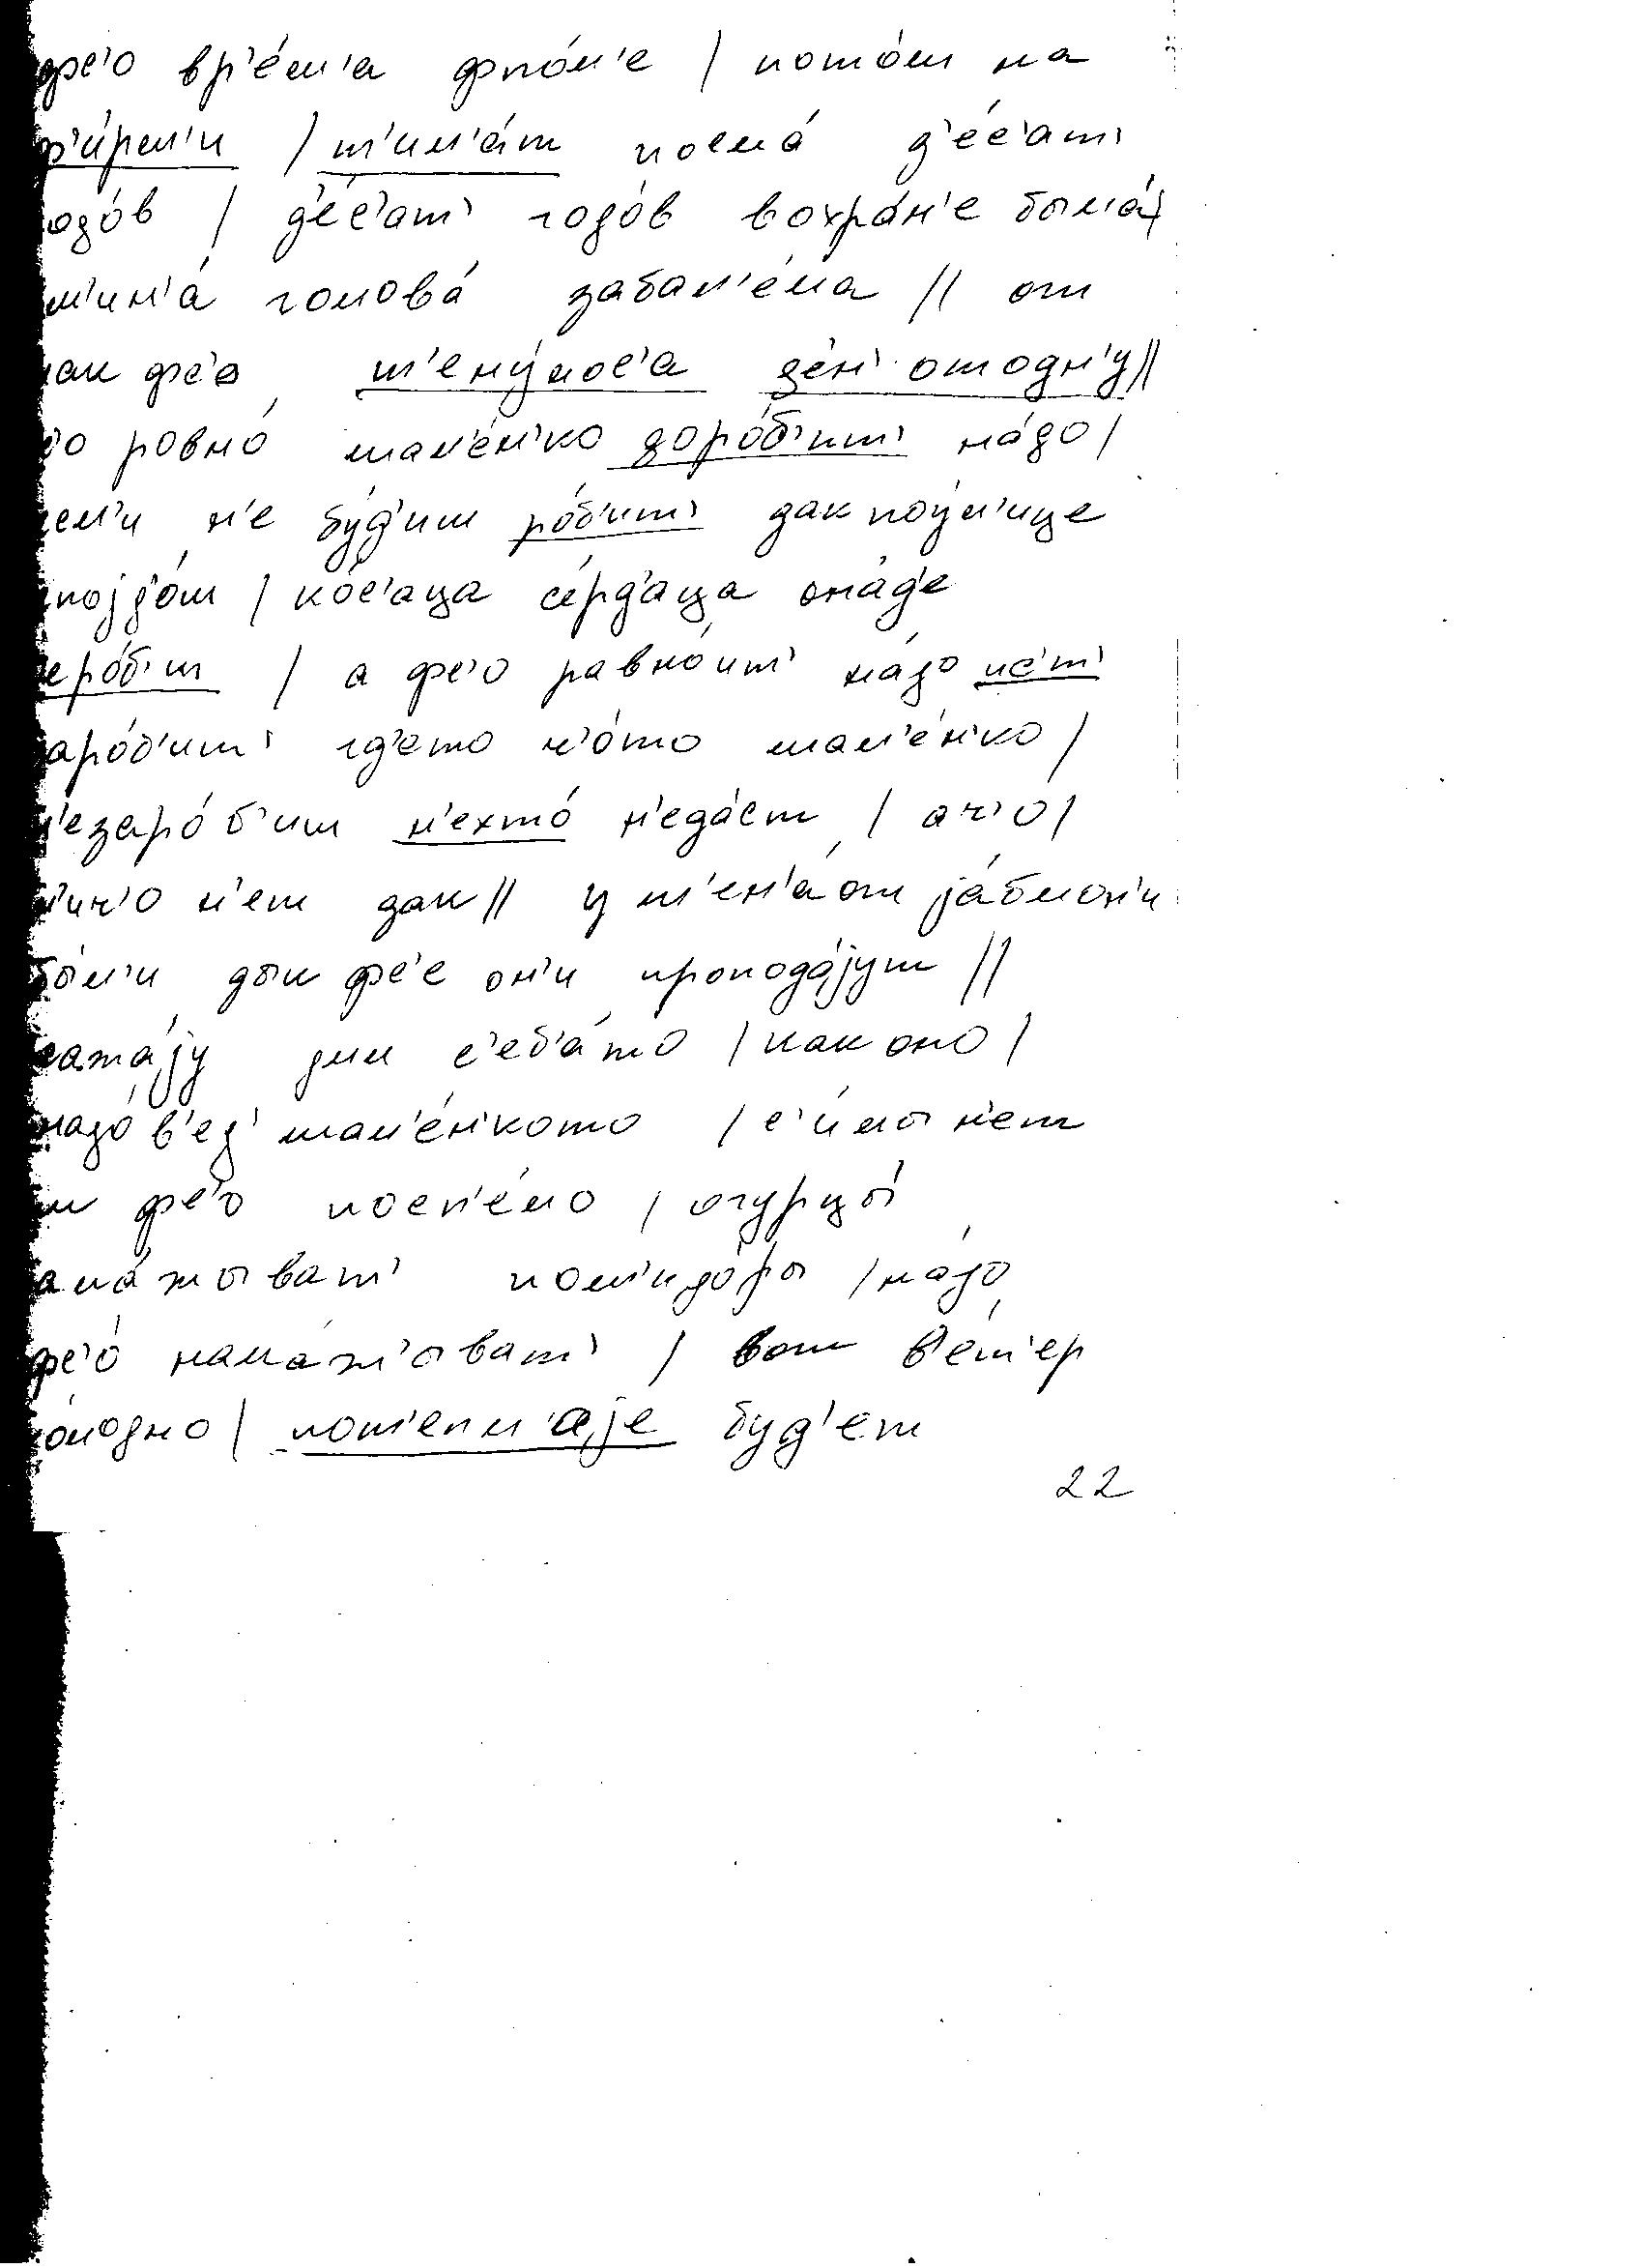 фс'о вр'е́м'а фпо́л'е / пото́м на
ф'и́рм'и / т'ил'а́т посла́ д'е́с'ат'
одо́в / д'е́с'ат' годо́в вохра́н'е была́/
м'ин'а́ голова́ забол'е́ла // от
так фс'о т'ену́лос'а ден' отодн'у́//
фо ровно́ мал'е́н'ко доро́б'ит' на́до/
ел'и н'е бу́д'иш ро́б'ит' дак поу́л'ице
пој́до́ш / ко́с'аца с'е́рд'аца она́д'е
еро́б'ит / а фс'о равно́ит' на́до ис'т'
аро́б'ит' гд'ето ч'о́то мал'е́н'ко /
н'езаро́б'иш н'ехто́ н'еда́ст / ач'о́/
н'ич'о н'ет дак// у м'ен'а́от ја́блон'и
бы́л'и дык фс'е он'и пропода́јут //
сажа́ју дл'и с'еб'а́то / как оно /
надо́ в'ед' мал'е́н'кото / с'и́лы н'ет
и фс'о посп'е́ло / огурцы́
ама́жыват' пом'идо́ры / на́до
фс'о́ нама́ж'ыват' / вот в'е́т'ер
о́лодно / пот'епл'а́је буд'ет
22